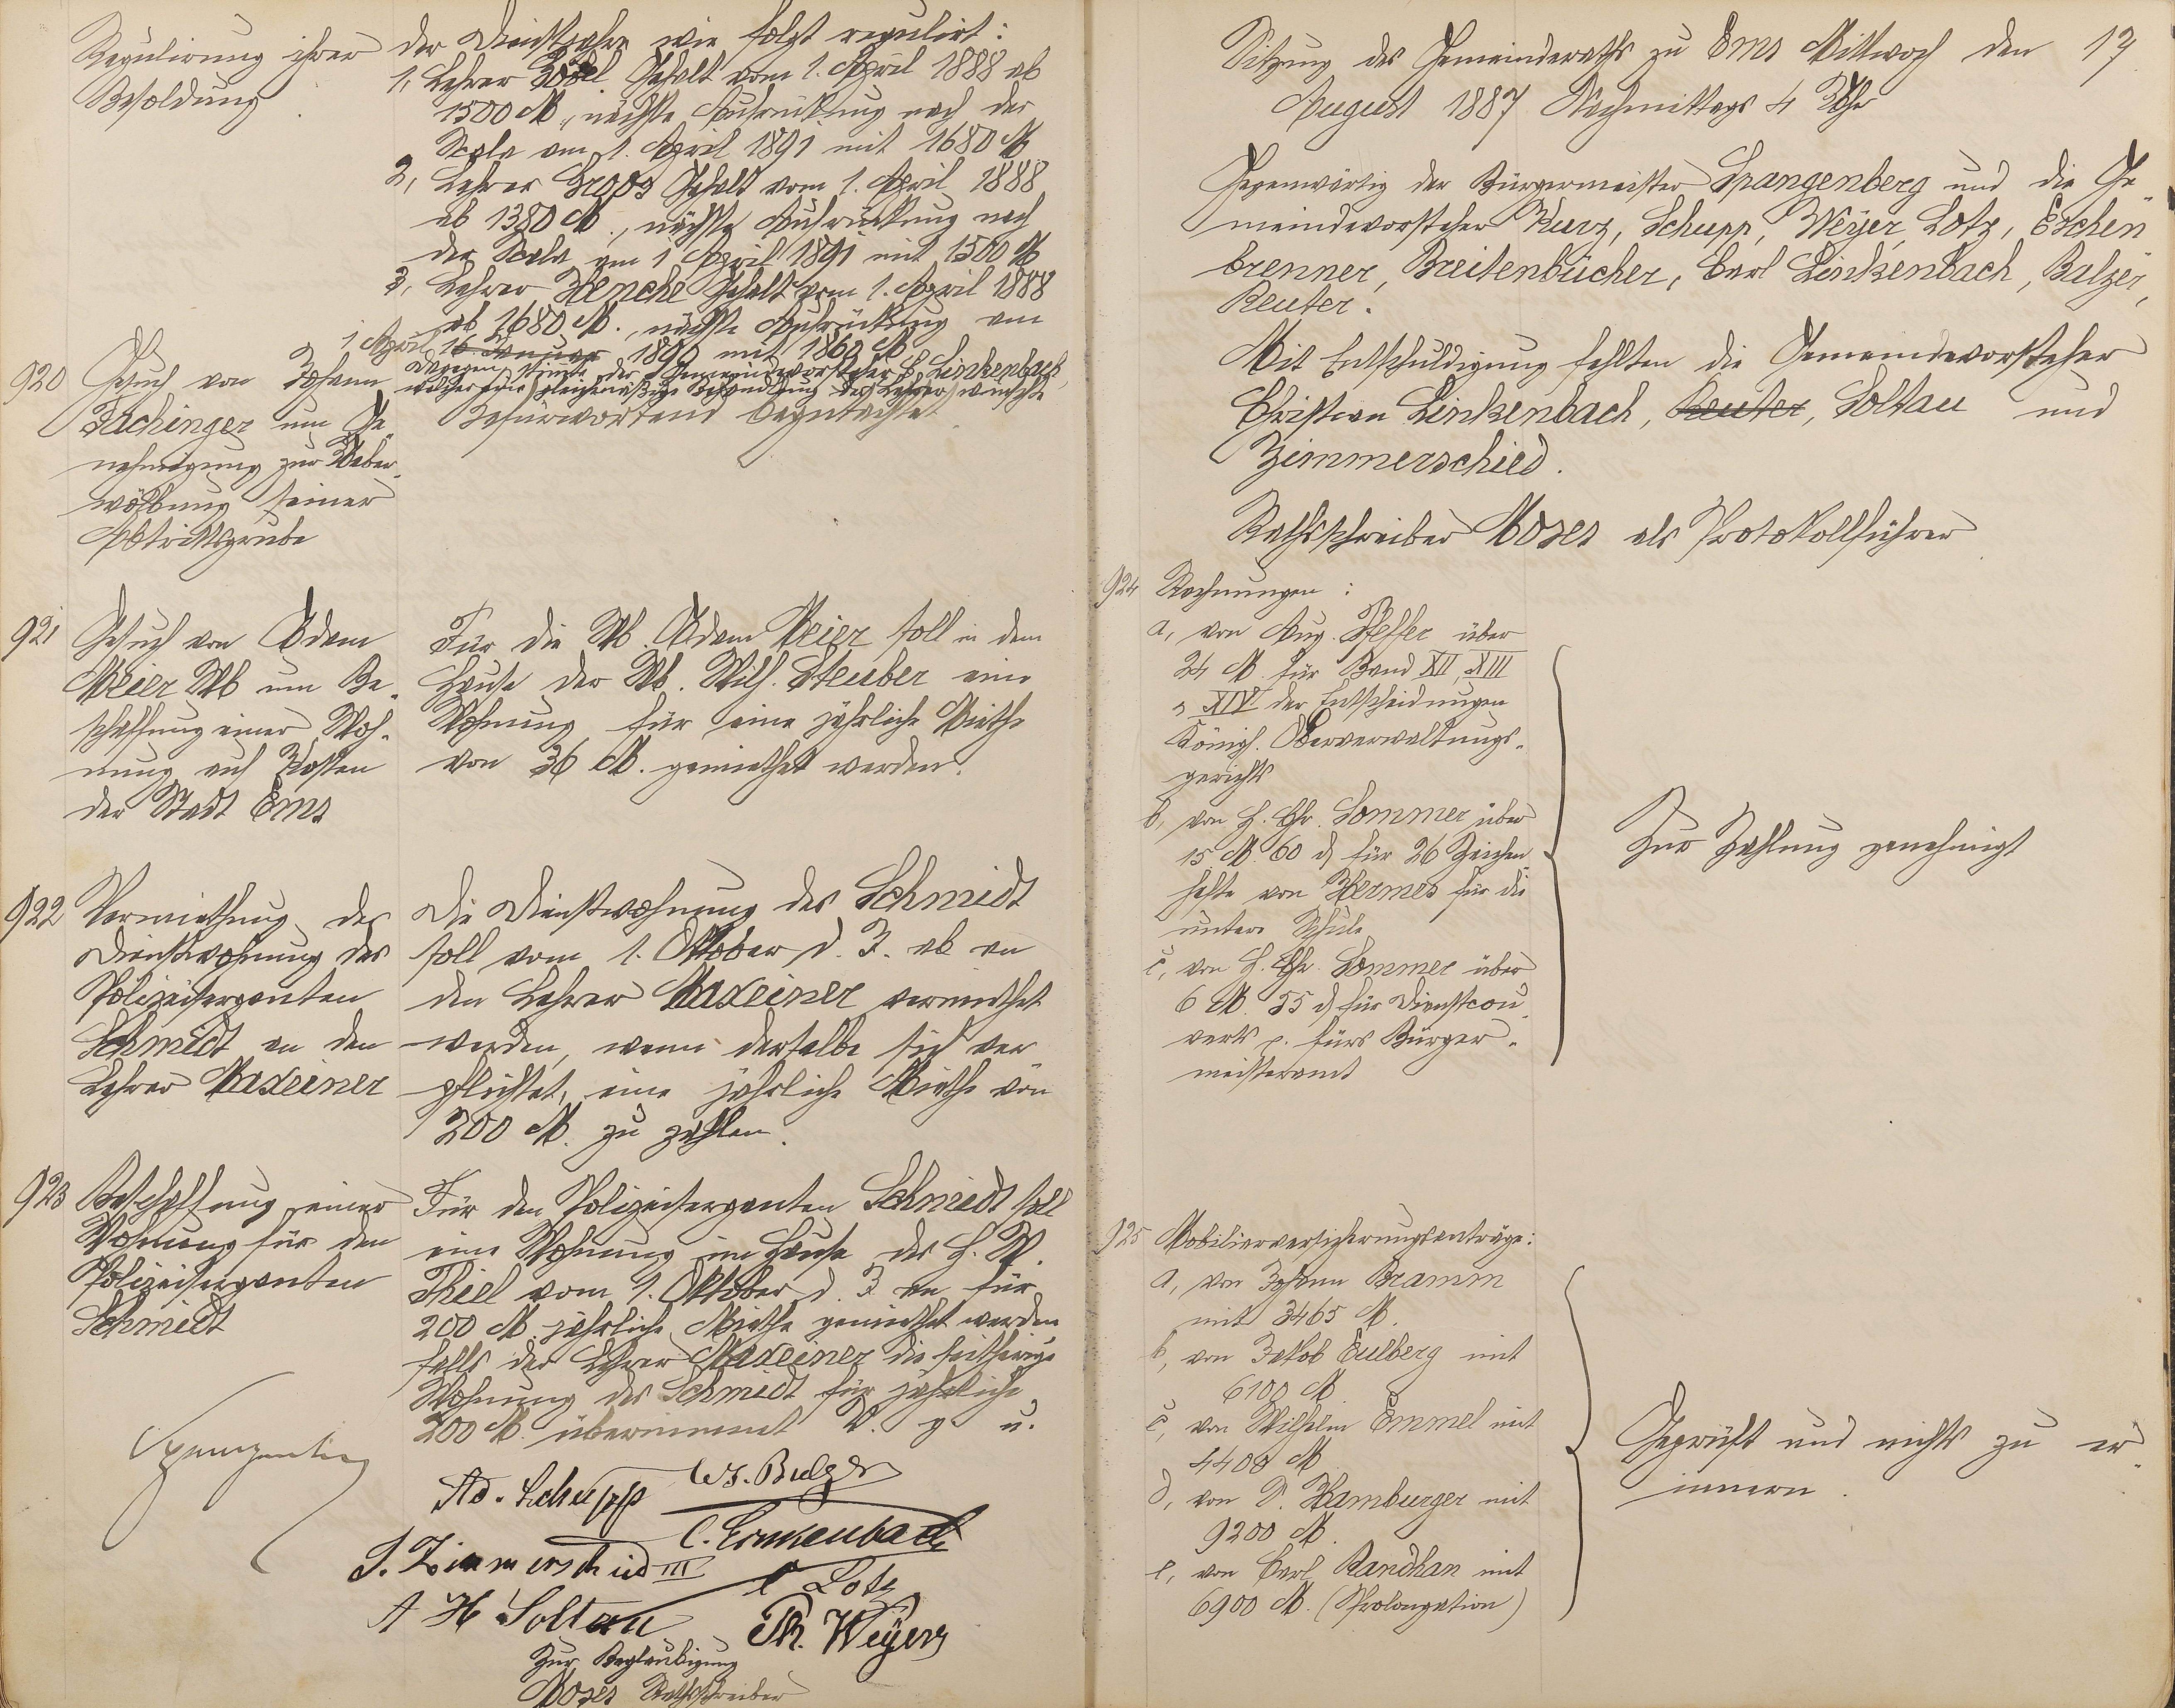 Regulirung ihrer
Besoldung
der Dienstjahre wie folgt regulirt:
1, Lehrer Gehalt vom 1. April 1888 ab
1500 M., nächste Aufrückung nach der
Scala am 1. April 1891 mit 1680 M
2, Lehrer Groos Gehalt vom 1. April 1888
ab 1380 M., nächste Aufrückung nach
der Scala am 1 April 1891 mit 1500 M
3, Lehrer Henche Gehalt vom 1. April 1888
ab 1680 M., nächste Aufrückung am
1 April 16 Januar 1890 mit 1860 M
Dagegen stimmte der Gemeindevorsteher C. Linkenbach,
welcher eine gleichmäßige Behandlung der Lehrer wünschte
920 Gesuch von Johann
Fachinger um Ge-
nehmigung zur Ueber-
wölbung seiner
Abtrittsgrube
Befürwortend begutachtet
921 Gesuch von Adam
Meier Wb um Be-
schaffung einer Woh-
nung auf Kosten
der Stadt Ems
Für die Wb. Adam Meier soll in dem
Hause der Wb. Wilh. Steuber eine
Wohnung für eine jährliche Miethe
von 36 M. gemiethet werden.
922 Vermiethung der
Dienstwohnung des
Polizeisergenten
Schmidt an den
Lehrer Maxeiner
Die Dienstwohnung des Schmidt
soll vom 1. Oktober d. J. ab an
den Lehrer Maxeiner vermiethet
werden, wenn derselbe sich ver-
pflichtet, eine jährliche Miethe von
200 M. zu zahlen.
923 Beschaffung einer
Wohnung für den
Polizeisergenten
Schmidt
Für den Polizeisergenten Schmidt soll
eine Wohnung im Hause des H. W.
Thiel vom 1. Oktober d. J. an für
200 M. jährliche Miethe gemiethet werden
falls der Lehrer Maxeiner die seitherige
Wohnung des Schmidt für jährliche
200 M. übernimmt V. g. u.
Spangenberg
Ad. Schupp Ws. Balzer
C. Linkenbach
J. Zimmerschied III
C Lotz
A H Soltau
Th. Weyer
Zur Beglaubigung
Moses Rathsschreiber
Sitzung des Gemeinderaths zu Ems Mittwoch den 17
August 1887 Nachmittags 4 Uhr
Gegenwärtig der Bürgermeister Spangenberg und die Ge-
meindevorsteher Kurz, Schupp, Weyer, Lotz, Eschen-
brenner, Breitenbücher, Carl Linkenbach, Balzer,
Reuter.
Mit Entschuldigung fehlten die Gemeindevorsteher
Christian Linkenbach, Reuter, Soltau und
Zimmerschied.
Rathsschreiber Moses als Protokollführer
924 Rechnungen:
a, von Aug. Pfeffer über
24 M. für Band XII, XIII
u XIV der Entscheidungen
Königl. Oberverwaltungs-
gerichts
b, von H. Chr. Sommer über
15 M. 60 ₰ für 26 Zeichen-
hefte von Hermes für die
untere Schule
c, von H. Chr. Sommer über
6 M. 55 ₰ für Dienstcou-
verts p. fürs Bürger-
meisteramt
Zur Zahlung genehmigt
925 Mobiliarversicherungsanträge:
a, von Johann Bramm
mit 3465 M.
b, von Jakob Eulberg mit
6100 M
c, von Wilhelm Emmel mit
4400 M
d, von D. Hamburger mit
9200 M.
e, von Carl Randhan mit
6900 M. (Prolongation)
Geprüft und nichts zu er-
innern.